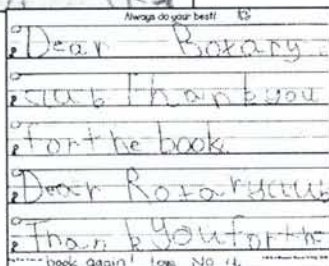 Always do your best!
Dear Rotary
club Thank you
for the book.
Dear Rotaryclub
Thank you forthe
book again! love No